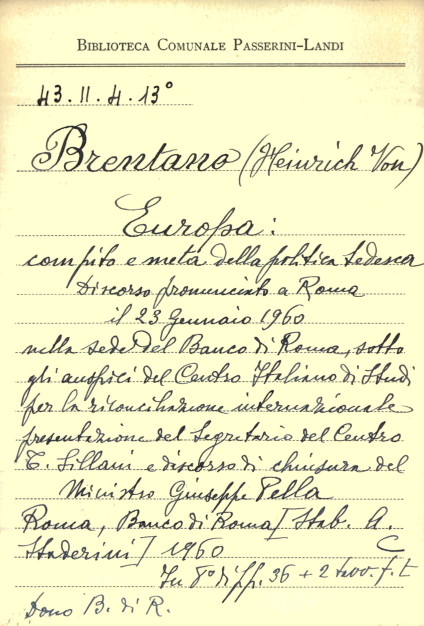 BIBLIOTECA COMUNALE PASSERINI-LANDI
43. II. 4. 13°
Brentano (Heinrich Von)
Europa:
compito e meta della politica tedesca
Discorso pronunciato a Roma
il 23 Gennaio 1960
nella sede del Banco di Roma, sotto
gli auspici del Centro Italiano di Studi
per la riconciliazione internazionale
presentazione del Segretario del Centro
T. Sillani e discorso di chiusura del
Ministro Giuseppe Pella
Roma, Banco di Roma [Stab. A.
Staderini] 1960 C
In 8° di pp. 36 + 2 tavv. f. t
Dono B. di R.